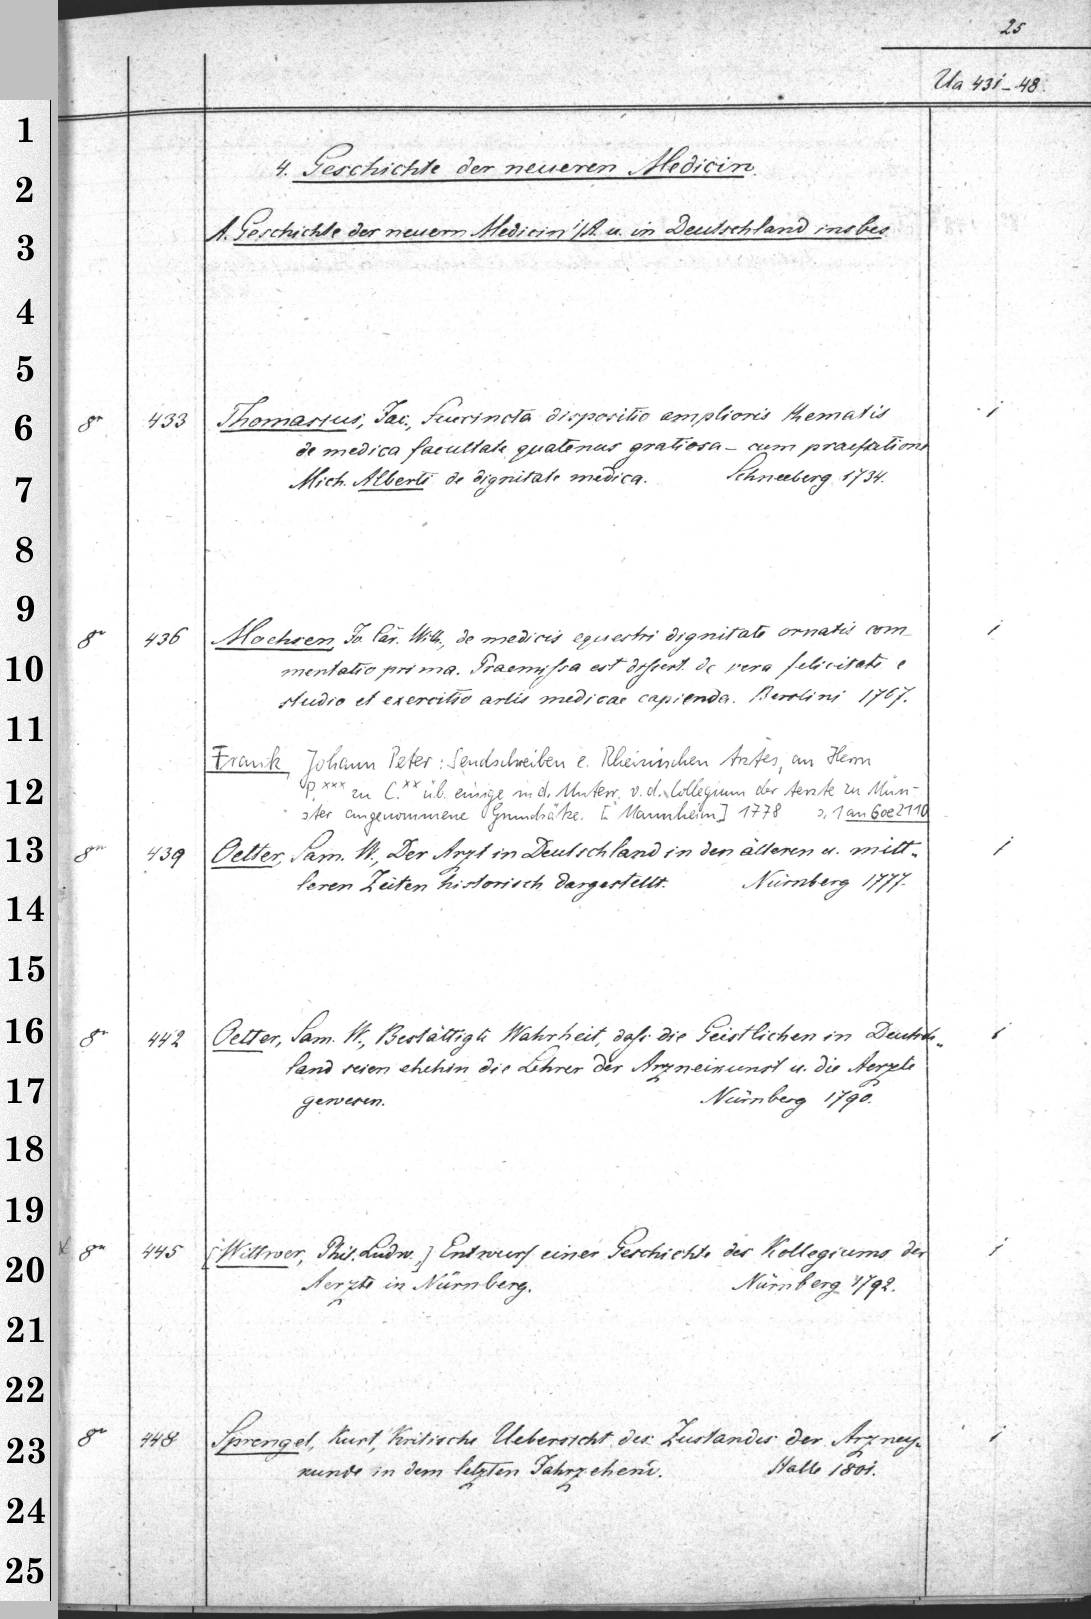 25
Ua 431-48
4. Geschichte der neueren Medicin.
A. Geschichte der neuern Medicin i/A. u. in Deutschland insbes.
8° 433 Thomasius, Jac., Succincta dispositio amplioris thematis 1
de medica facultate quatenus gratiosa - cum praefatione
Mich. Alberti de dignitate medica. Schneeberg 1734.
8° 436 Moehsen, Jo. Car. Wilh., de medicis equestri dignitate ornatis com- 1
mentatio prima. Praemissa est dissert. de vera felicitate e
studio et exercitio artis medicae capienda. Berolini 1767.
Frank, Johann Peter: Sendschreiben e. Rheinischen Arztes, an Herrn
P.xxx zu C.xx üb. einige in d. Unterr. v. d. Collegium der Aerzte zu Mün-
ster angenommene Grundsätze. [Mannheim] 1778 s. 1 an 6oe2110
8° 439 Oetter, Sam. W., Der Arzt in Deutschland in den älteren u. mitt- 1
leren Zeiten historisch dargestellt. Nürnberg 1777.
8° 442 Oetter, Sam. W., Bestättigte Wahrheit, daß die Geistlichen in Deutsch- 1
land seien ehehin die Lehrer der Arzneikunst u. die Aerzte
gewesen. Nürnberg 1790.
x 8° 445 [Wittwer, Phil. Ludw.,] Entwurf einer Geschichte des Kollegiums der 1
Aerzte in Nürnberg. Nürnberg 1792.
8° 448 Sprengel, Kurt, Kritische Uebersicht des Zustandes der Arzney- 1
kunde in dem letzten Jahrzehend. Halle 1801.
1
2
3
4
5
6
7
8
9
10
11
12
13
14
15
16
17
18
19
20
21
22
23
24
25